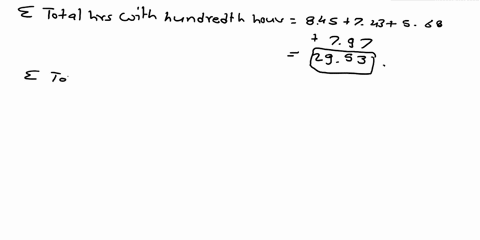 Σ Total hrs with hundredth hour = 8.45 + 7.43 + 5.68
+ 7.97
= 29.53.
Σ To